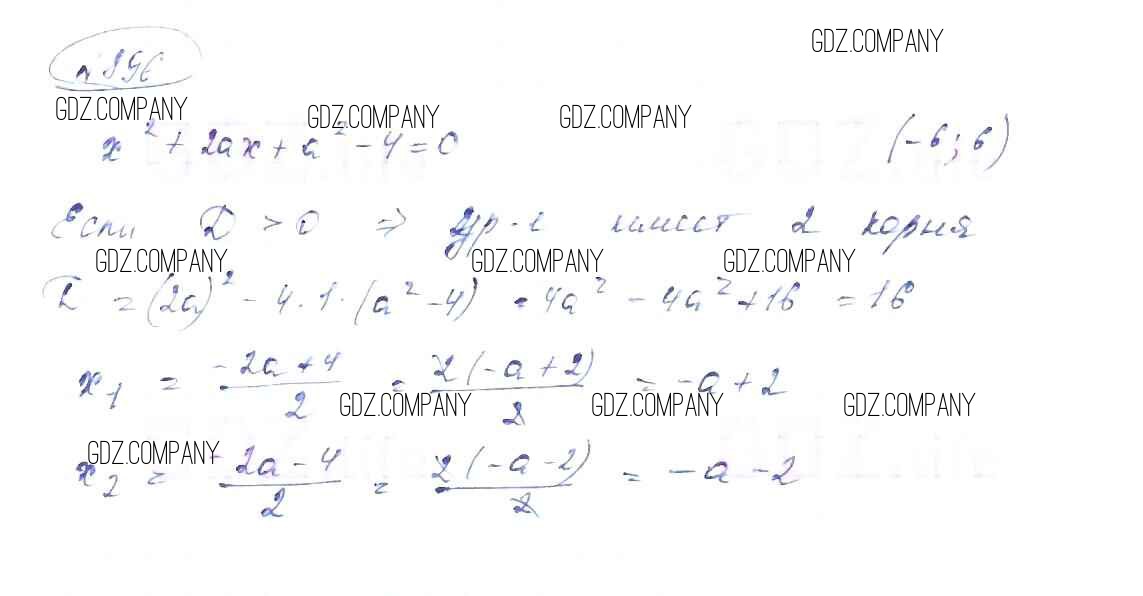 GDZ.COMPANY
№ 896
GDZ.COMPANY GDZ.COMPANY GDZ.COMPANY
x² + 2ax + a² - 4 = 0 (-6; 6)
Если D > 0 ⇒ ур-е имеет 2 корня
GDZ.COMPANY GDZ.COMPANY GDZ.COMPANY
D = (2a)² - 4 · 1 · (a² - 4) = 4a² - 4a² + 16 = 16
x₁ = (-2a + 4)/2 = 2(-a + 2)/2 = -a + 2
GDZ.COMPANY GDZ.COMPANY GDZ.COMPANY
GDZ.COMPANY
x₂ = (-2a - 4)/2 = 2(-a - 2)/2 = -a - 2